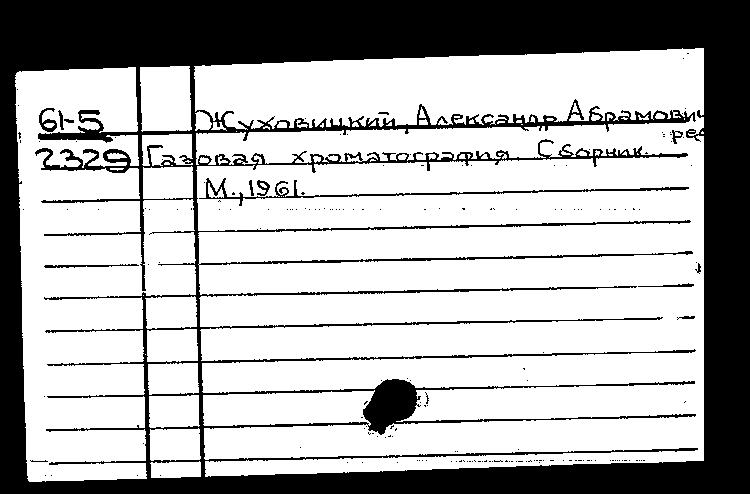 61-5
Жуховицкий, Александр Абрамович
ред
2329 Газовая хроматография. Сборник...
М., 1961.